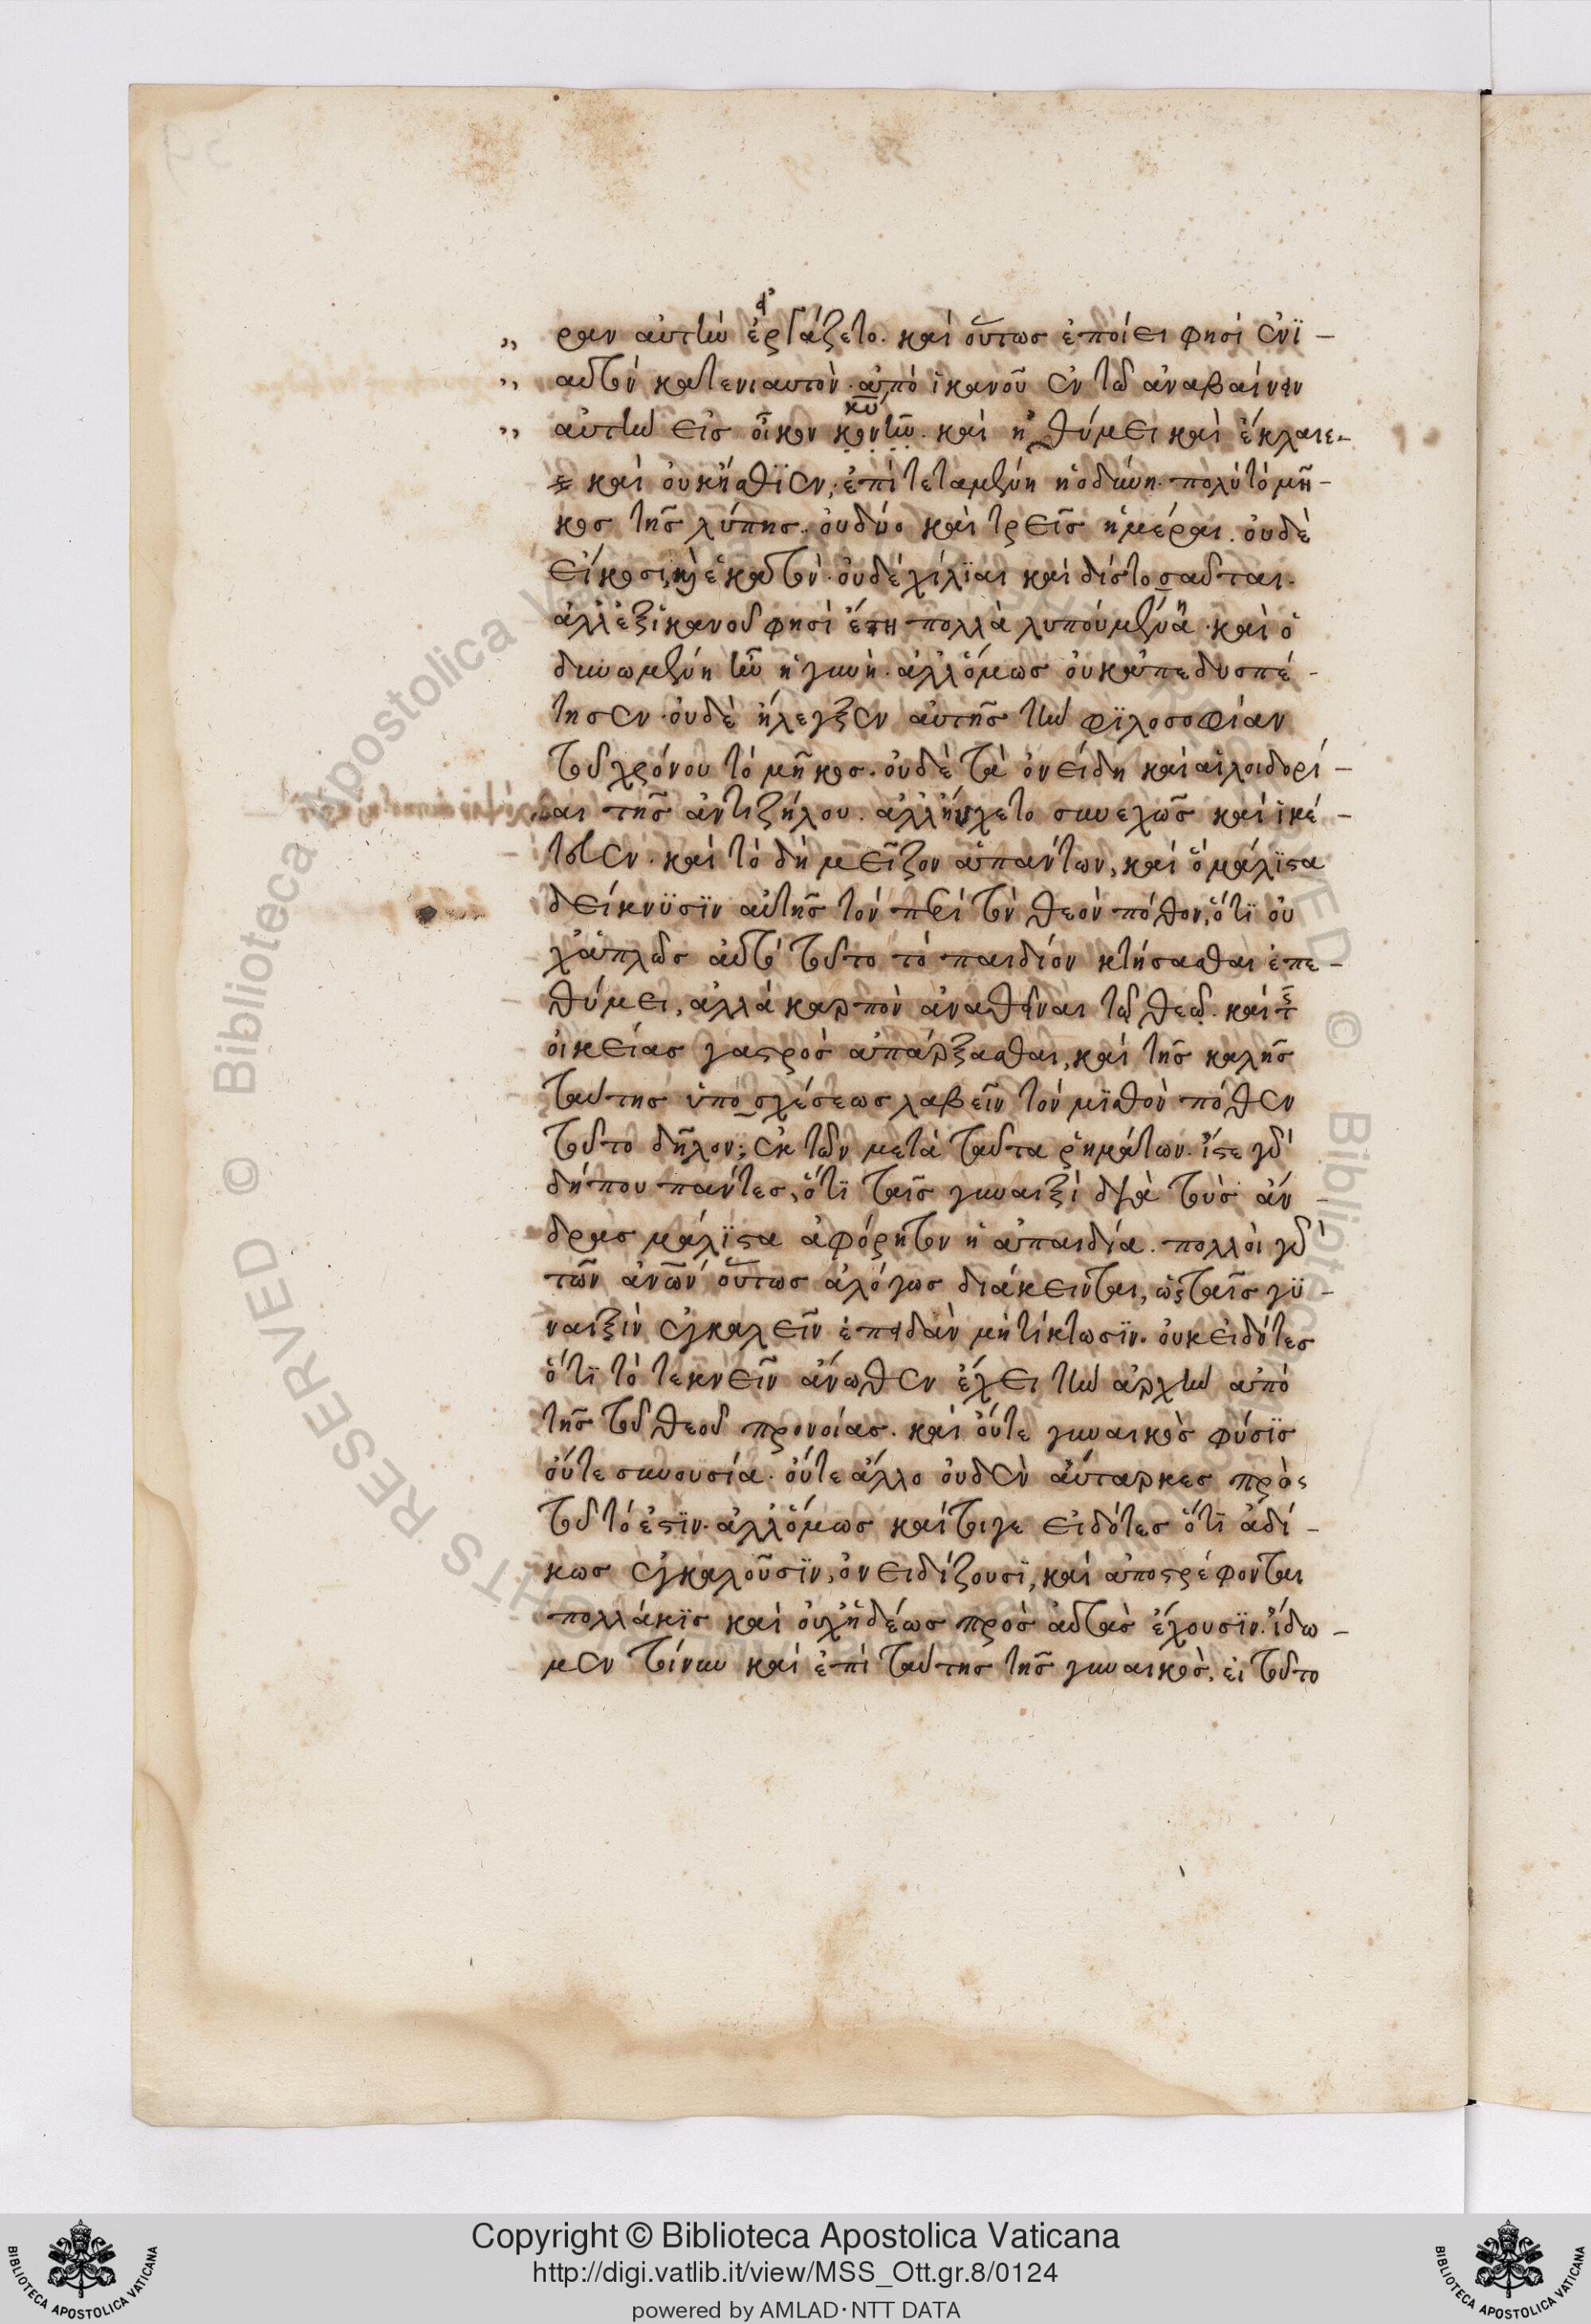 ραν αὐτὴν ἐργάζετο. καὶ οὕτως ἐποίει φησὶ ἐνϊ-
αυτὸν κατενιαυτὸν. ἀπὸ ἱκανοῦ ἐν τῶ ἀναβαίνειν
κῡ
αὐτὴν εἰς οἶκον. καὶ ἠθύμει καὶ ἔκλαιε-
καὶ οὐκ ἤσθϊεν. ἐπιτεταμένη ἡ ὀδύνη. πολὺ τὸ μῆ-
κος τῆς λύπης. οὐ δύο καὶ τρεῖς ἡμέραι. οὐδὲ
εἴκοσι, καὶ ἑκατόν. οὐδὲ χίλϊαι καὶ δὶς τοσαῦται.
ἀλλ' ἐξ ἱκανοῦ φησὶ ἔτη πολλὰ λυπουμένη. καὶ ὀ
δυνωμένη ἦν ἡ γυνή. ἀλλ' ὅμως οὐκ ἀπεδυσπέ-
τησεν. οὐδὲ ἤλεγξεν αὐτῆς τὴν φϊλοσοφίαν
τοῦ χρόνου τὸ μῆκος. οὐδὲ τὰ ὀνείδη καὶ αἱ λοιδορί-
αι τῆς ἀντιζήλου. ἀλλ' ηὔχετο συνεχῶς καὶ ἱκέ-
τευεν. καὶ τὸ δὴ μεῖζον ἁπάντων, καὶ ὃ μάλϊστα
δείκνϋσϊν αὐτῆς τὸν περὶ τὸν θεὸν πόθον, ὅτϊ οὐ
χ' ἁπλῶς αὐτὸ τοῦτο τὸ παιδίον κτήσασθαι ἐπε-
θύμει, ἀλλὰ καρπὸν ἀναθεῖναι τῷ θεῷ. καὶ τῆς
οἰκείας γαστρὸς ἀπάρξασθαι, καὶ τῆς καλῆς
ταύτης ὑποσχέσεως λαβεῖν τὸν μϊσθὸν πόθεν
τοῦτο δῆλον; ἐκ τῶν μετὰ ταῦτα ῥημάτων. ἴστε γὰρ
δήπου πάντες, ὅτϊ ταῖς γυναιξὶ διὰ τοὺς ἄν-
δρας μάλϊστα ἀφόρητον ἡ ἀπαιδία. πολλοὶ γὰρ
τῶν ἀν̅ων οὕτως ἀλόγως διάκεινται, ὡς ταῖς γϋ-
ναιξὶν ἐγκαλεῖν ἐπειδὰν μὴ τίκτωσϊν. οὐκ εἰδότες
ὅτϊ τὸ τεκνεῖν ἄνωθεν ἔχει τὴν ἀρχὴν ἀπὸ
τῆς τοῦ θεοῦ προνοίας. καὶ οὔτε γυναικὸς φύσϊς
οὔτε συνουσία. οὔτε ἄλλο οὐδὲν αὔταρκες πρὸς
τοῦτό ἐστϊν. ἀλλ' ὅμως καίτοιγε εἰδότες ὅτϊ ἀδί-
κως ἐγκαλοῦσϊν, ὀνειδίζουσϊ, καὶ ἀποστρέφονται
πολλάκϊς καὶ οὐχ ἡδέως πρὸς αὐτὰς ἔχουσϊν. ἴδω-
μεν τοίνυν καὶ ἐπὶ ταύτης τῆς γυναικὸς, εἰ τοῦτο
Copyright © Biblioteca Apostolica Vaticana
http://digi.vatlib.it/view/MSS_Ott.gr.8/0124
powered by AMLAD·NTT DATA